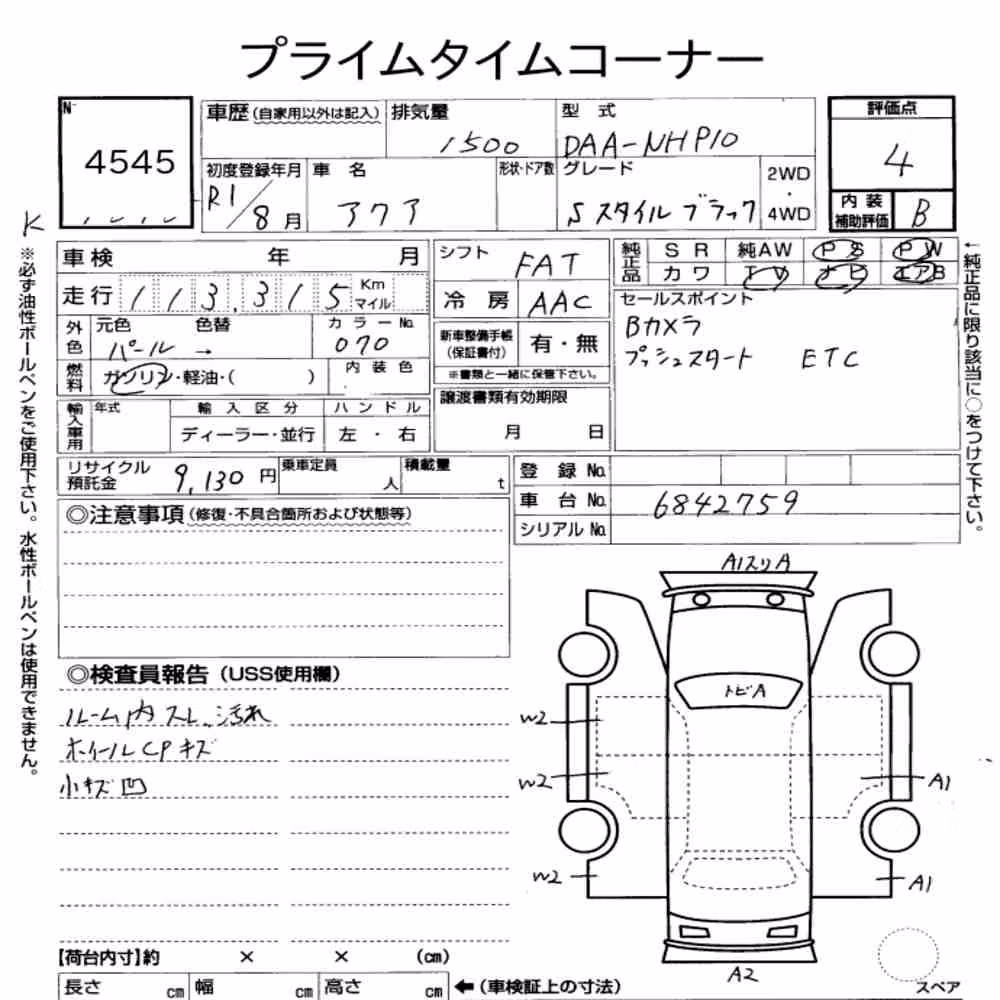 プライムタイムコーナー
No.
4545
車歴(自家用以外は記入) 排気量 型式
1500 DAA-NHP10
初度登録年月 車名 形状・ドア数 グレード 2WD・4WD
R1/8月 アクア Sスタイル ブラック
評価点
4
内装補助評価 B
K
※必ず油性ボールペンをご使用下さい。水性ボールペンは使用できません。
←純正品に限り該当に○をつけて下さい。
車検 年 月
走行 113,315 Km マイル
外色 元色 色替 カラーNo.
パール → 070
燃料 ガソリン・軽油・( ) 内装色
輸入車用 年式 輸入区分 ハンドル
ディーラー・並行 左・右
シフト FAT
冷房 AAC
新車整備手帳(保証書付) 有・無
※書類と一緒に保管下さい。
譲渡書類有効期限
月 日
純正品 SR 純AW PS PW
カワ TV ナビ エアB
セールスポイント
Bカメラ
プッシュスタート ETC
リサイクル預託金 9,130円 乗車定員 人 積載量 t
登録No.
車台No. 6842759
シリアルNo.
◎注意事項(修復・不具合箇所および状態等)
◎検査員報告(USS使用欄)
ルーム内スレ、汚れ
ホイールCPキズ
小キズ凹
A1スリA
トビA
W2
W2
A1
W2
A1
A2
スペア
【荷台内寸】約 × × (cm)
長さ cm 幅 cm 高さ cm ←(車検証上の寸法)